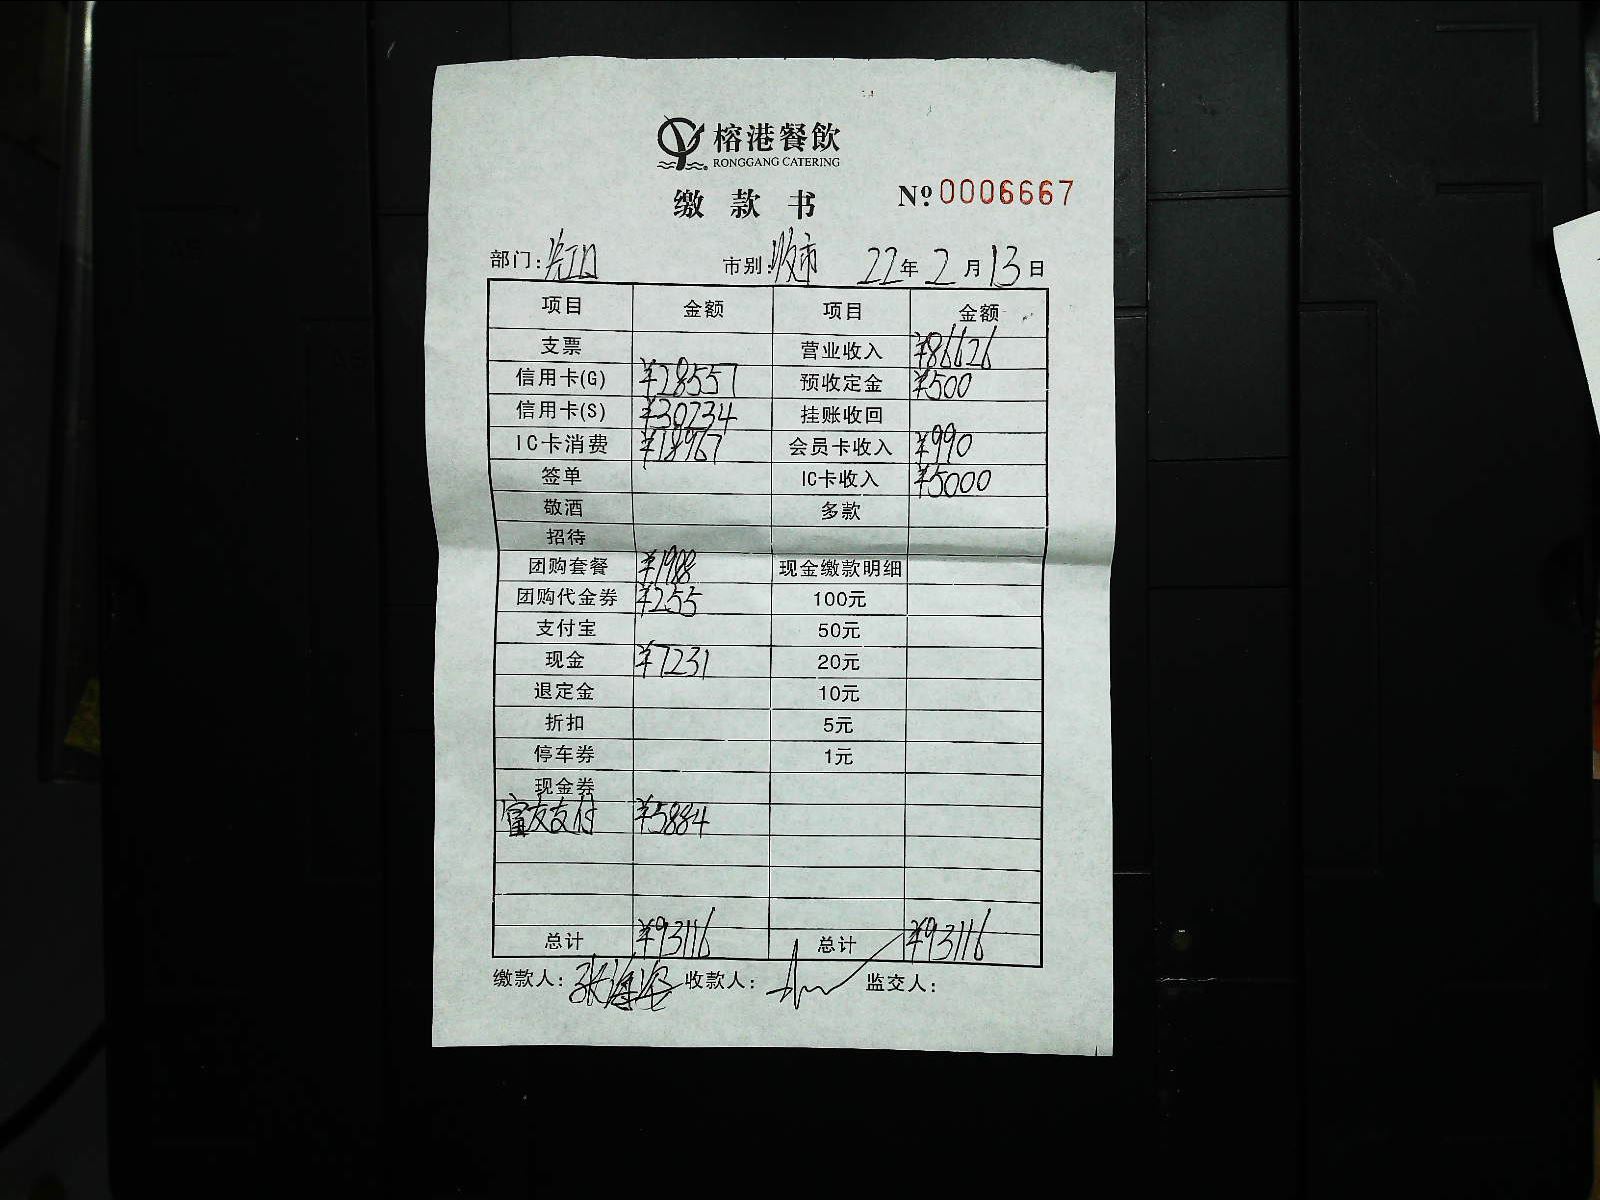 榕港餐飲
RONGGANG CATERING
缴款书 Nº 0006667
部门: 市别: 晚市 22年2月13日
项目 金额 项目 金额
支票 营业收入 ¥86626
信用卡(G) ¥28557 预收定金 ¥500
信用卡(S) ¥30234 挂账收回
IC卡消费 ¥18967 会员卡收入 ¥990
签单 IC卡收入 ¥5000
敬酒 多款
招待
团购套餐 ¥1988 现金缴款明细
团购代金券 ¥255 100元
支付宝 50元
现金 ¥7231 20元
退定金 10元
折扣 5元
停车券 1元
现金券
富友支付 ¥5884
总计 ¥93116 总计 ¥93116
缴款人: 收款人: 监交人: